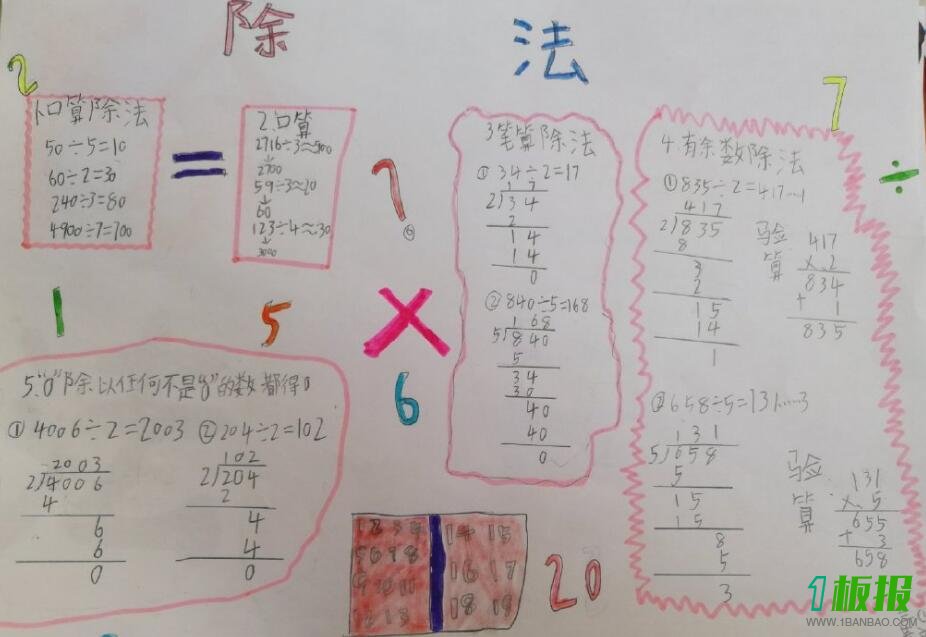 除 法
2
1.口算除法
50÷5=10
60÷2=30
240÷3=80
4900÷7=700
=
2.口算
2716÷3≈900
↓
2700
59÷3≈20
↓
60
123÷4≈30
↓
?
3笔算除法
①34÷2=17
17
2√34
2
14
14
0
②840÷5=168
168
5√840
5
34
30
40
40
0
7
÷
4.有余数除法
①835÷2=417……1
417
2√835
8
3
2
15
14
1
验算
417
×2
834
+ 1
835
②658÷5=131……3
131
5√658
5
15
15
8
5
3
验算
131
×5
655
+ 3
658
1
5
×
6
5."0"除以任何不是"0"的数都得0
①4006÷2=2003 ②204÷2=102
2003
2√4006
4
6
6
0
102
2√204
2
4
4
0
1 2 3 4
5 6 7 8
9 10 11
12 13
14 15
16 17
18 19
20
1板报
WWW.1BANBAO.COM